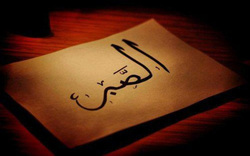 الصَّبْرُ